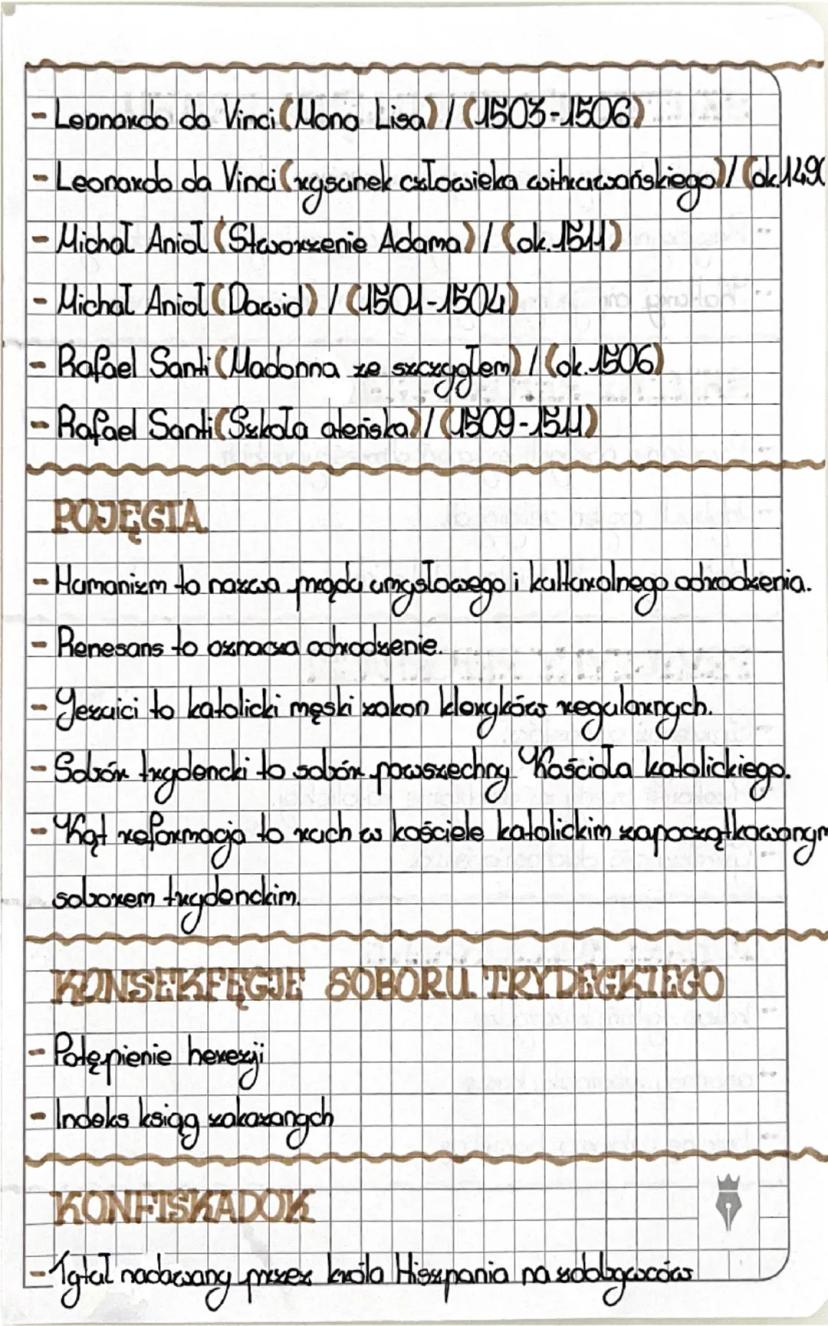 - Leonardo da Vinci (Mona Lisa) / (1503-1506)
- Leonardo da Vinci (rysunek człowieka witruwańskiego) / (ok.1490
- Michał Anioł (Stworzenie Adama) / (ok.1511)
- Michał Anioł (Dawid) / (1501-1504)
- Rafael Santi (Madonna ze szczygłem) / (ok.1506)
- Rafael Santi (Szkoła ateńska) / (1509-1511)
POJĘCIA
- Humanizm to nazwa prądu umysłowego i kulturolnego odrodzenia.
- Renesans to oznacza odrodzenie.
- Jezuici to katolicki męski zakon kleryków regularnych.
- Sobór trydencki to sobór powszechny Kościoła katolickiego.
- Kąt reformacja to ruch w kościele katolickim zapoczątkowanym
soborem trydenckim.
KONSEKFĘCJE SOBORU TRYDECKIEGO
- Potępienie herezji
- Indeks ksiąg zakazanych
KONFISKADOK
- Tytuł nadawany przez króla Hiszpania na zdobywców